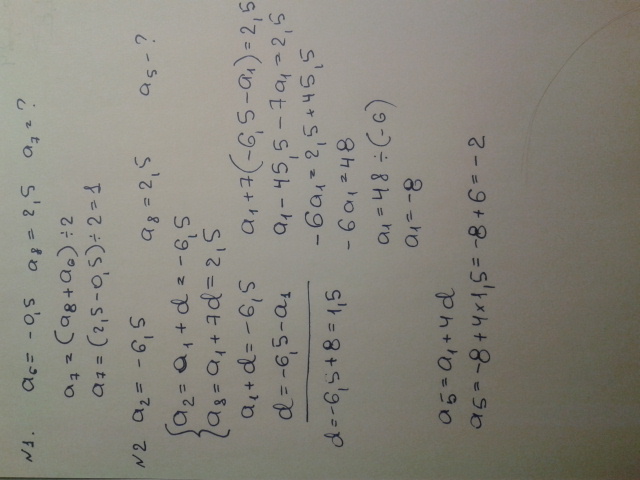 N1. a6 = -0,5 a8 = 2,5 a7 = ?
a7 = (a8 + a6) ÷ 2
a7 = (2,5 - 0,5) ÷ 2 = 1
N2 a2 = -6,5 a8 = 2,5 a5 - ?
{a2 = a1 + d = -6,5
a8 = a1 + 7d = 2,5
a1 + d = -6,5
d = -6,5 - a1
a1 + 7(-6,5 - a1) = 2,5
a1 - 45,5 - 7a1 = 2,5
-6a1 = 2,5 + 45,5
-6a1 = 48
a1 = 48 ÷ (-6)
a1 = -8
d = -6,5 + 8 = 1,5
a5 = a1 + 4d
a5 = -8 + 4×1,5 = -8 + 6 = -2